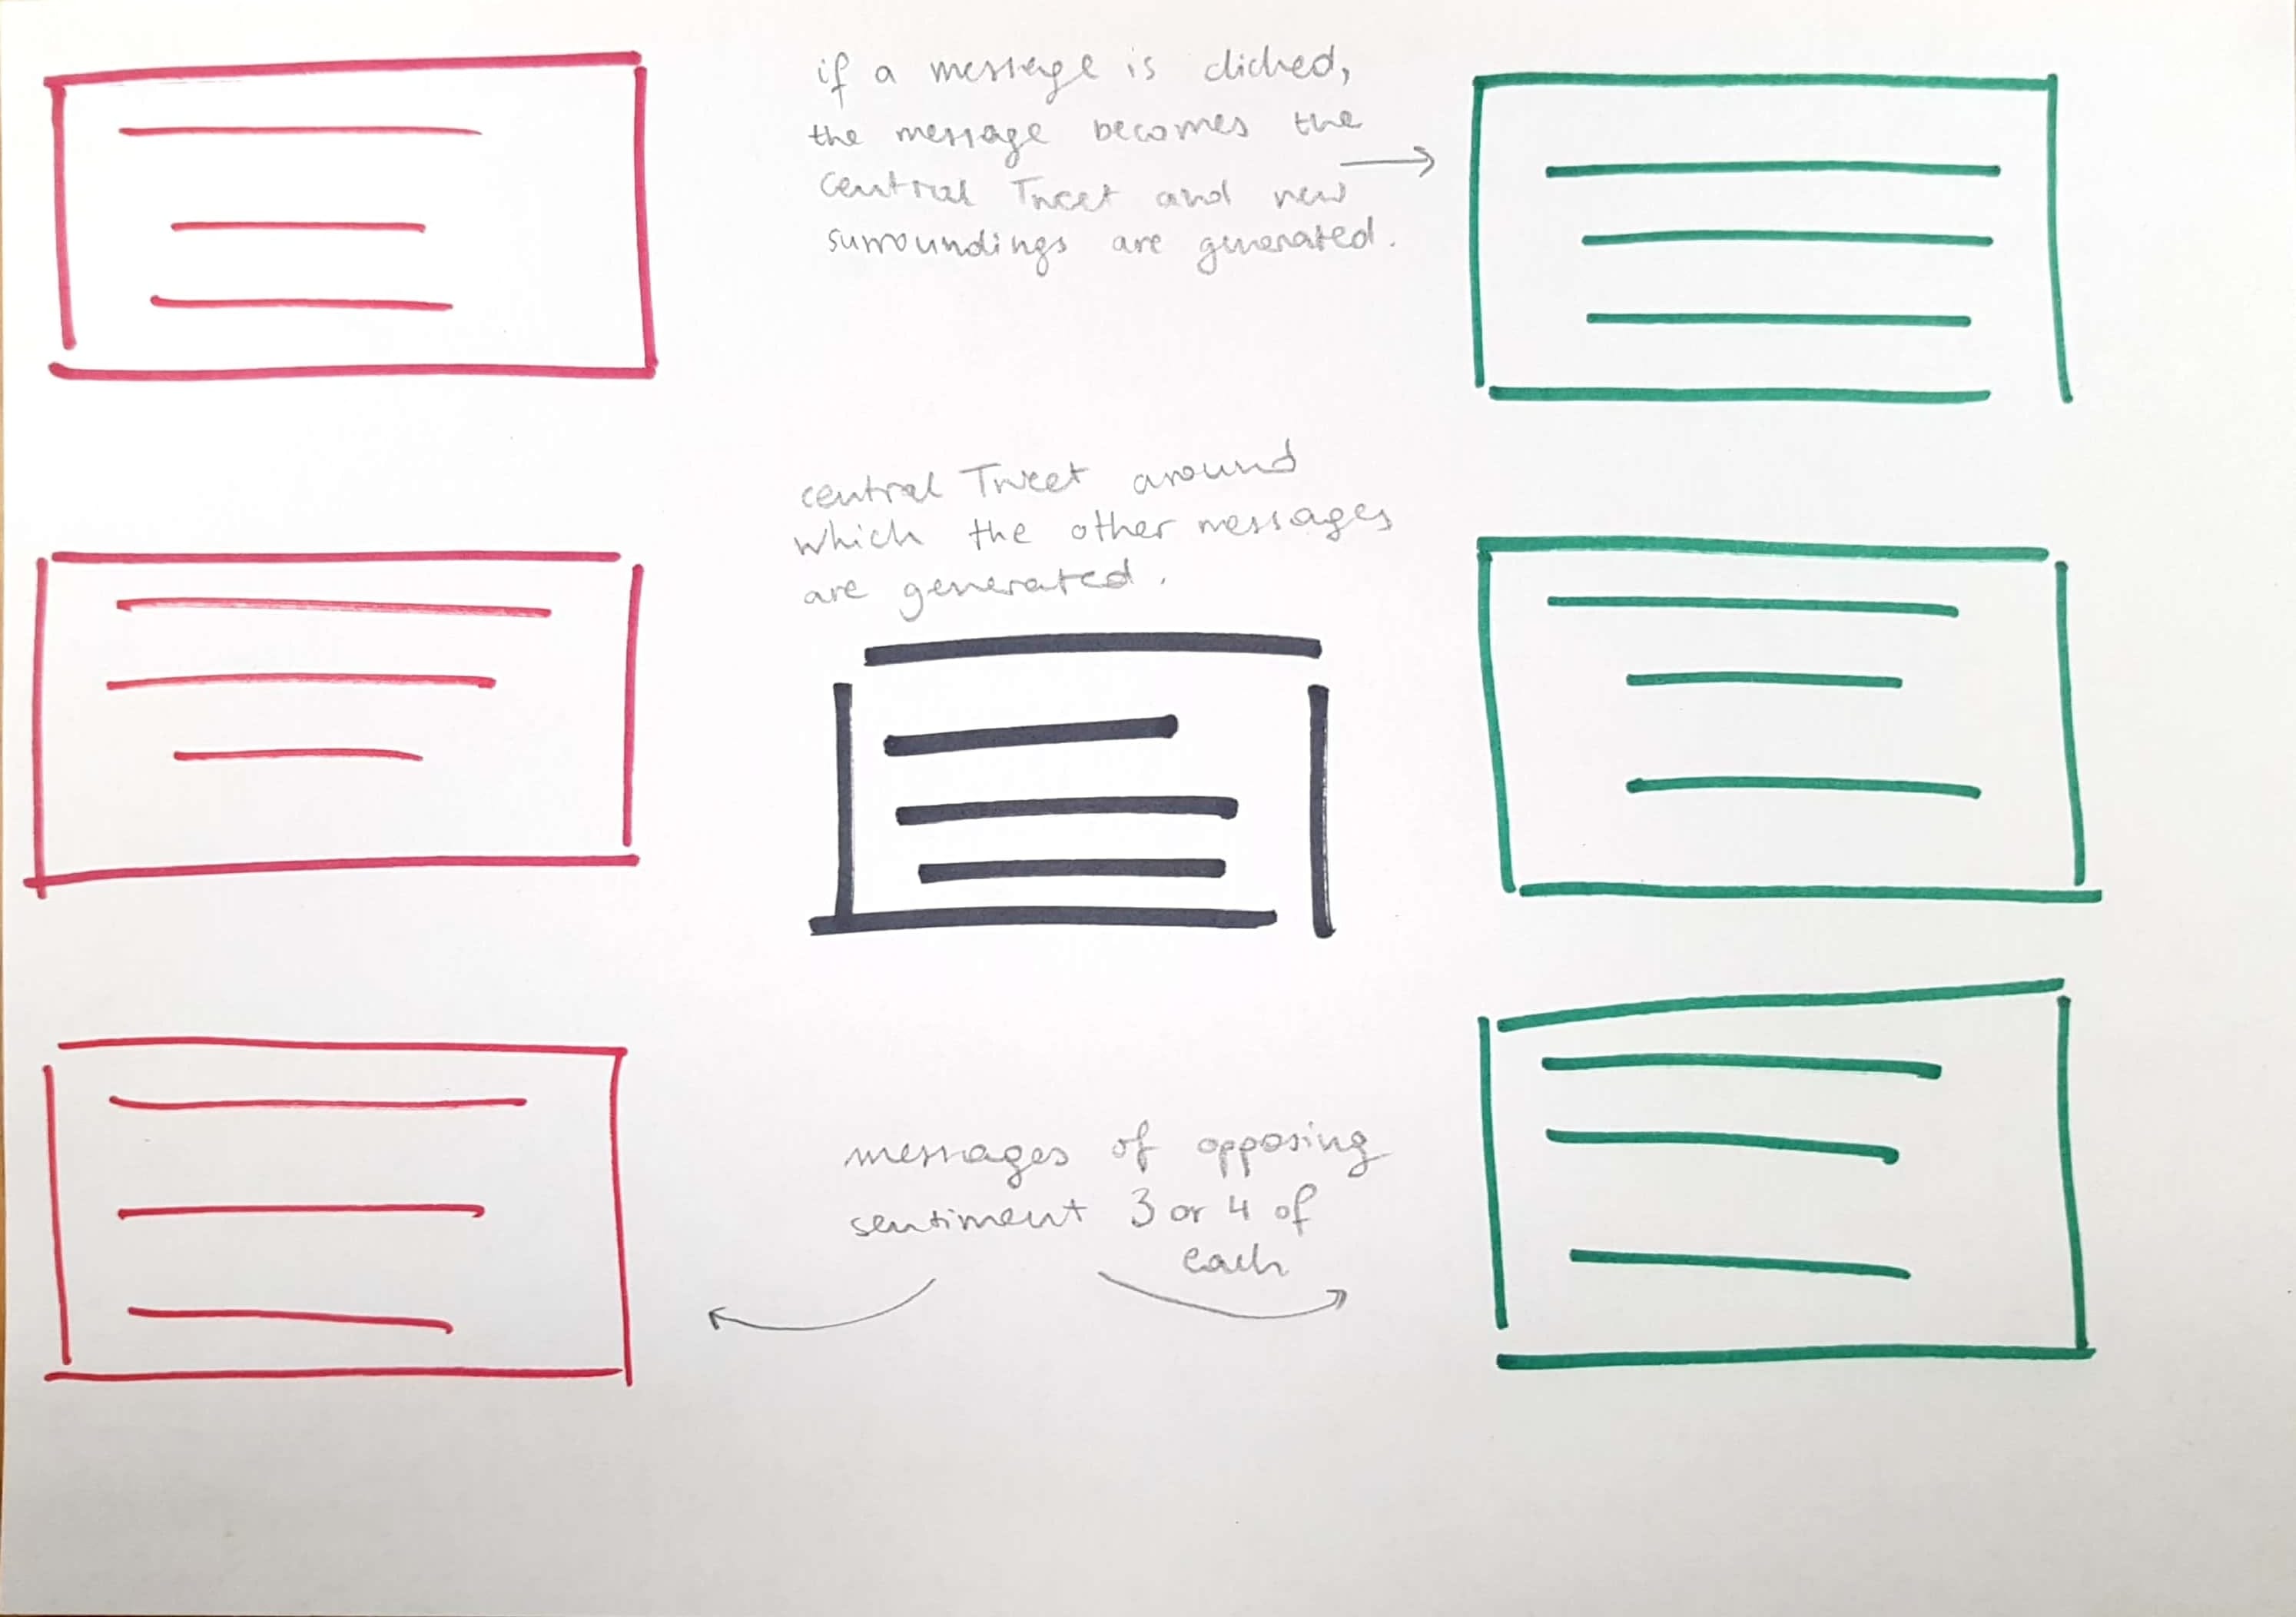 if a message is clicked,
the message becomes the
central Tweet and new
surroundings are generated.
central Tweet around
which the other messages
are generated.
messages of opposing
sentiment 3 or 4 of
each